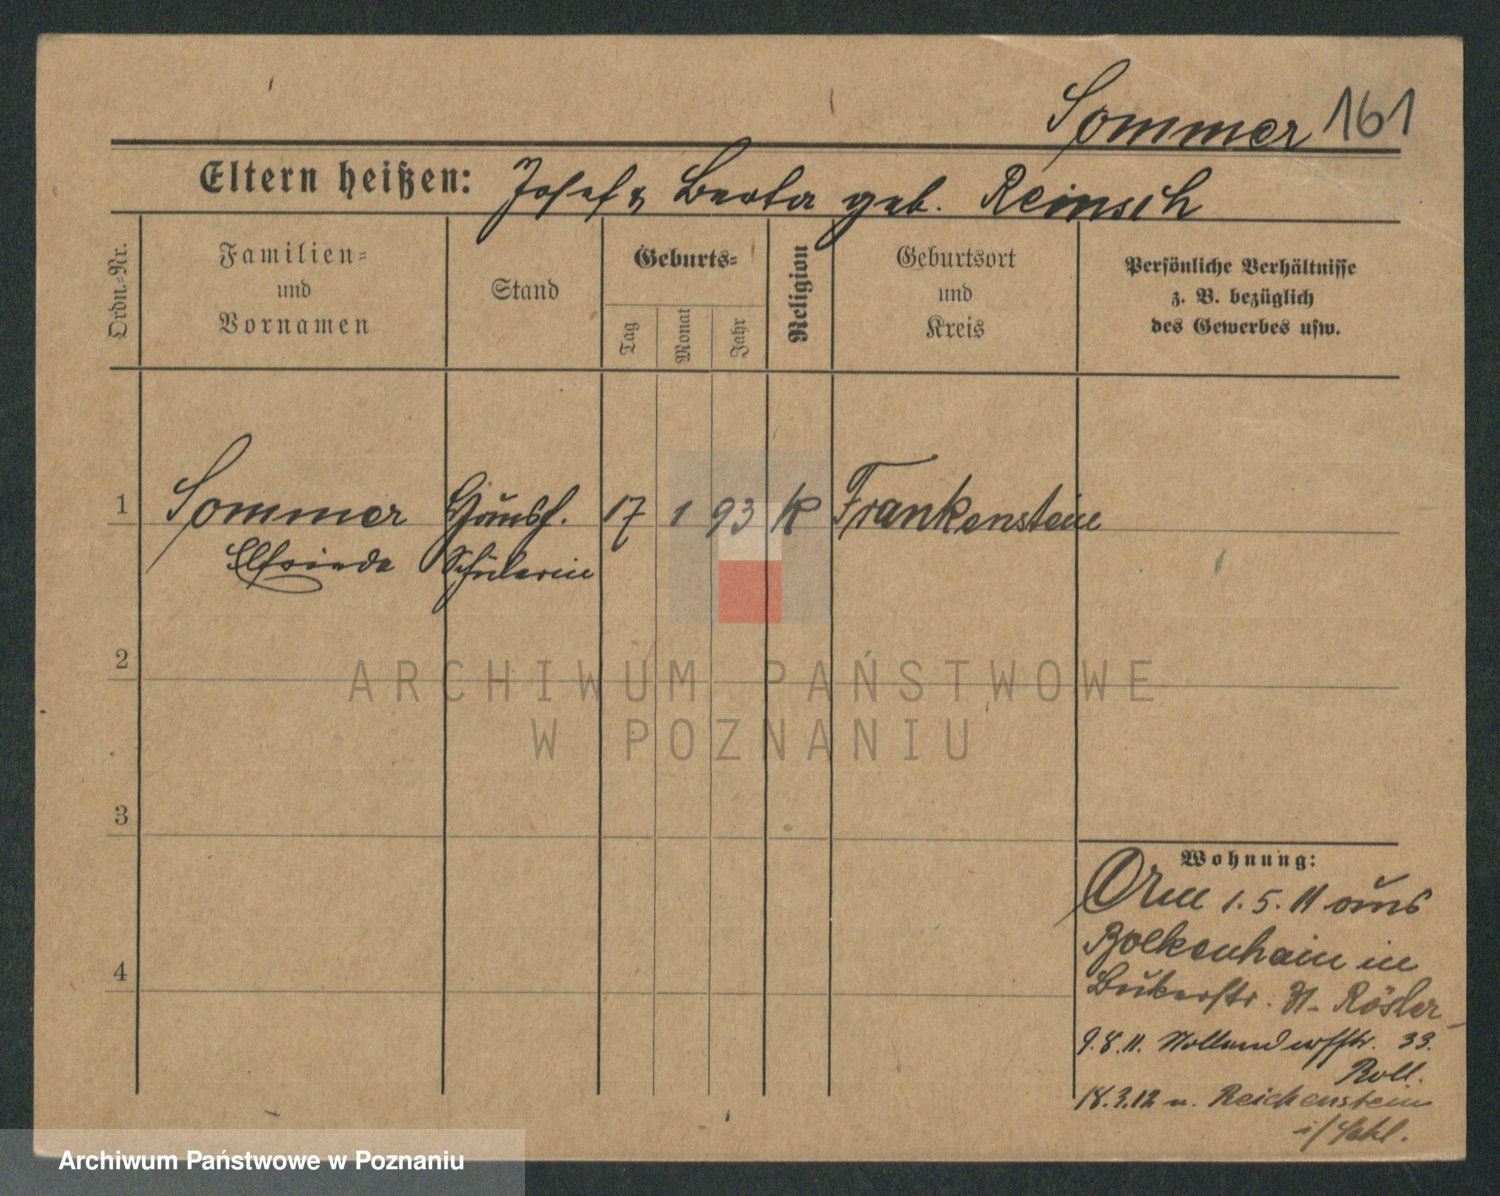 Sommer 161
Eltern heißen: Josef & Berta geb. Reinsch
Ordn.-Nr.
Familien-
und
Vornamen
Stand
Geburts-
Tag
Monat
Jahr
Religion
Geburtsort
und
Kreis
Persönliche Verhältnisse
z. B. bezüglich
des Gewerbes usw.
1 Sommer Haush. 17 1 93 K Frankenstein
Elfriede Schülerin
2
ARCHIWUM PAŃSTWOWE
W POZNANIU
3
Wohnung:
1.5.11 aus
Bolkenhain in
4
Bukerstr. 31 Rösler
9.8.11. 33.
18.3.12 n. Reichenstein
i/Schl.
Archiwum Państwowe w Poznaniu